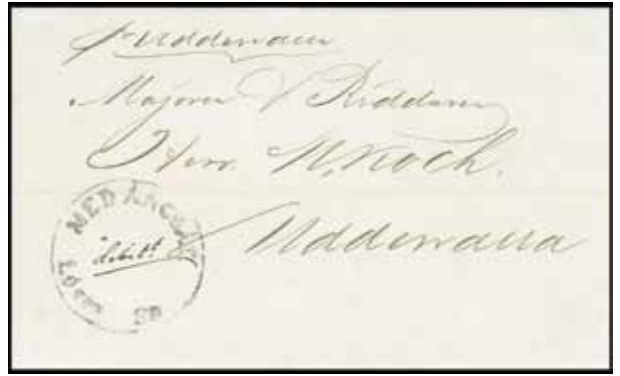 p Uddewalla
Majoren & Riddaren
Herr. N, Koch.
Uddewalla
MED ÅNGBÅT
debitt
Lösen SB